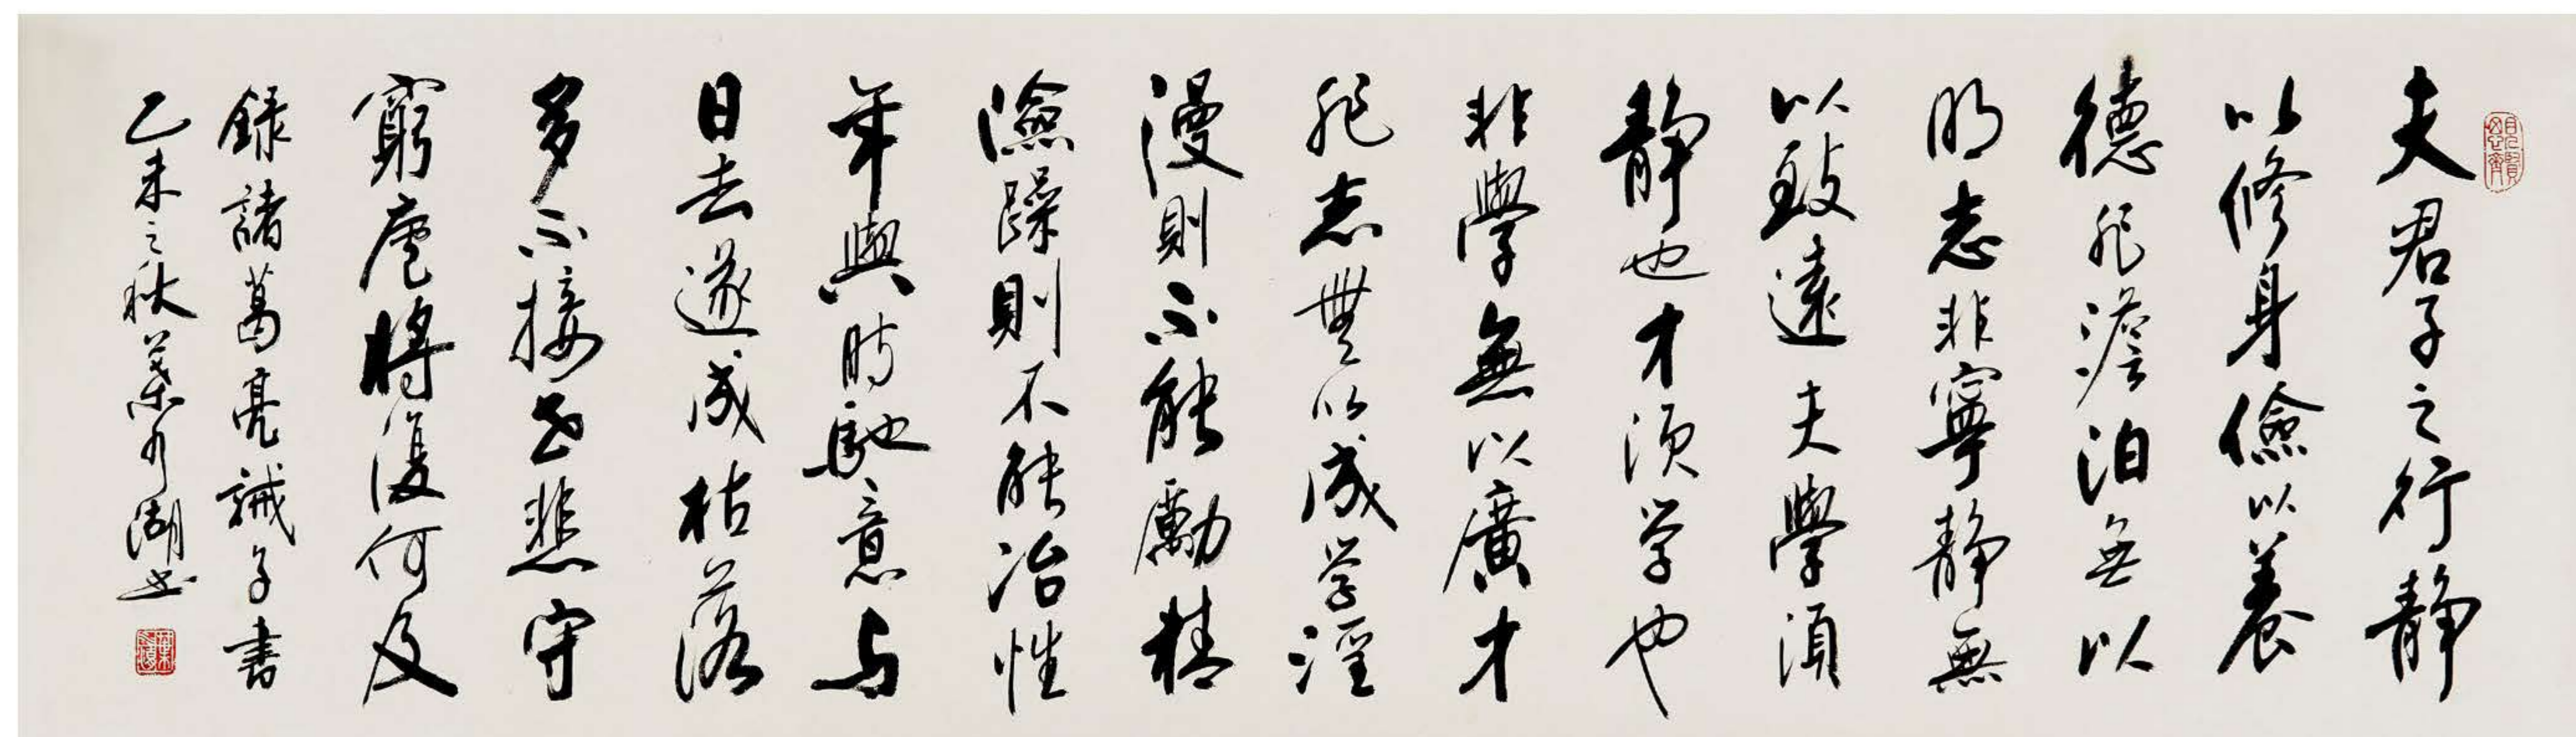 夫君子之行静
以修身儉以養
德非澹泊無以
明志非寧静無
以致遠夫學須
静也才须学也
非學無以廣才
非志無以成学淫
漫則不能勵精
險躁則不能冶性
年與時馳意与
日去遂成枯落
多不接世悲守
窮廬將復何及
録諸葛亮誡子書
乙未之秋葉湖书
見賢思齊